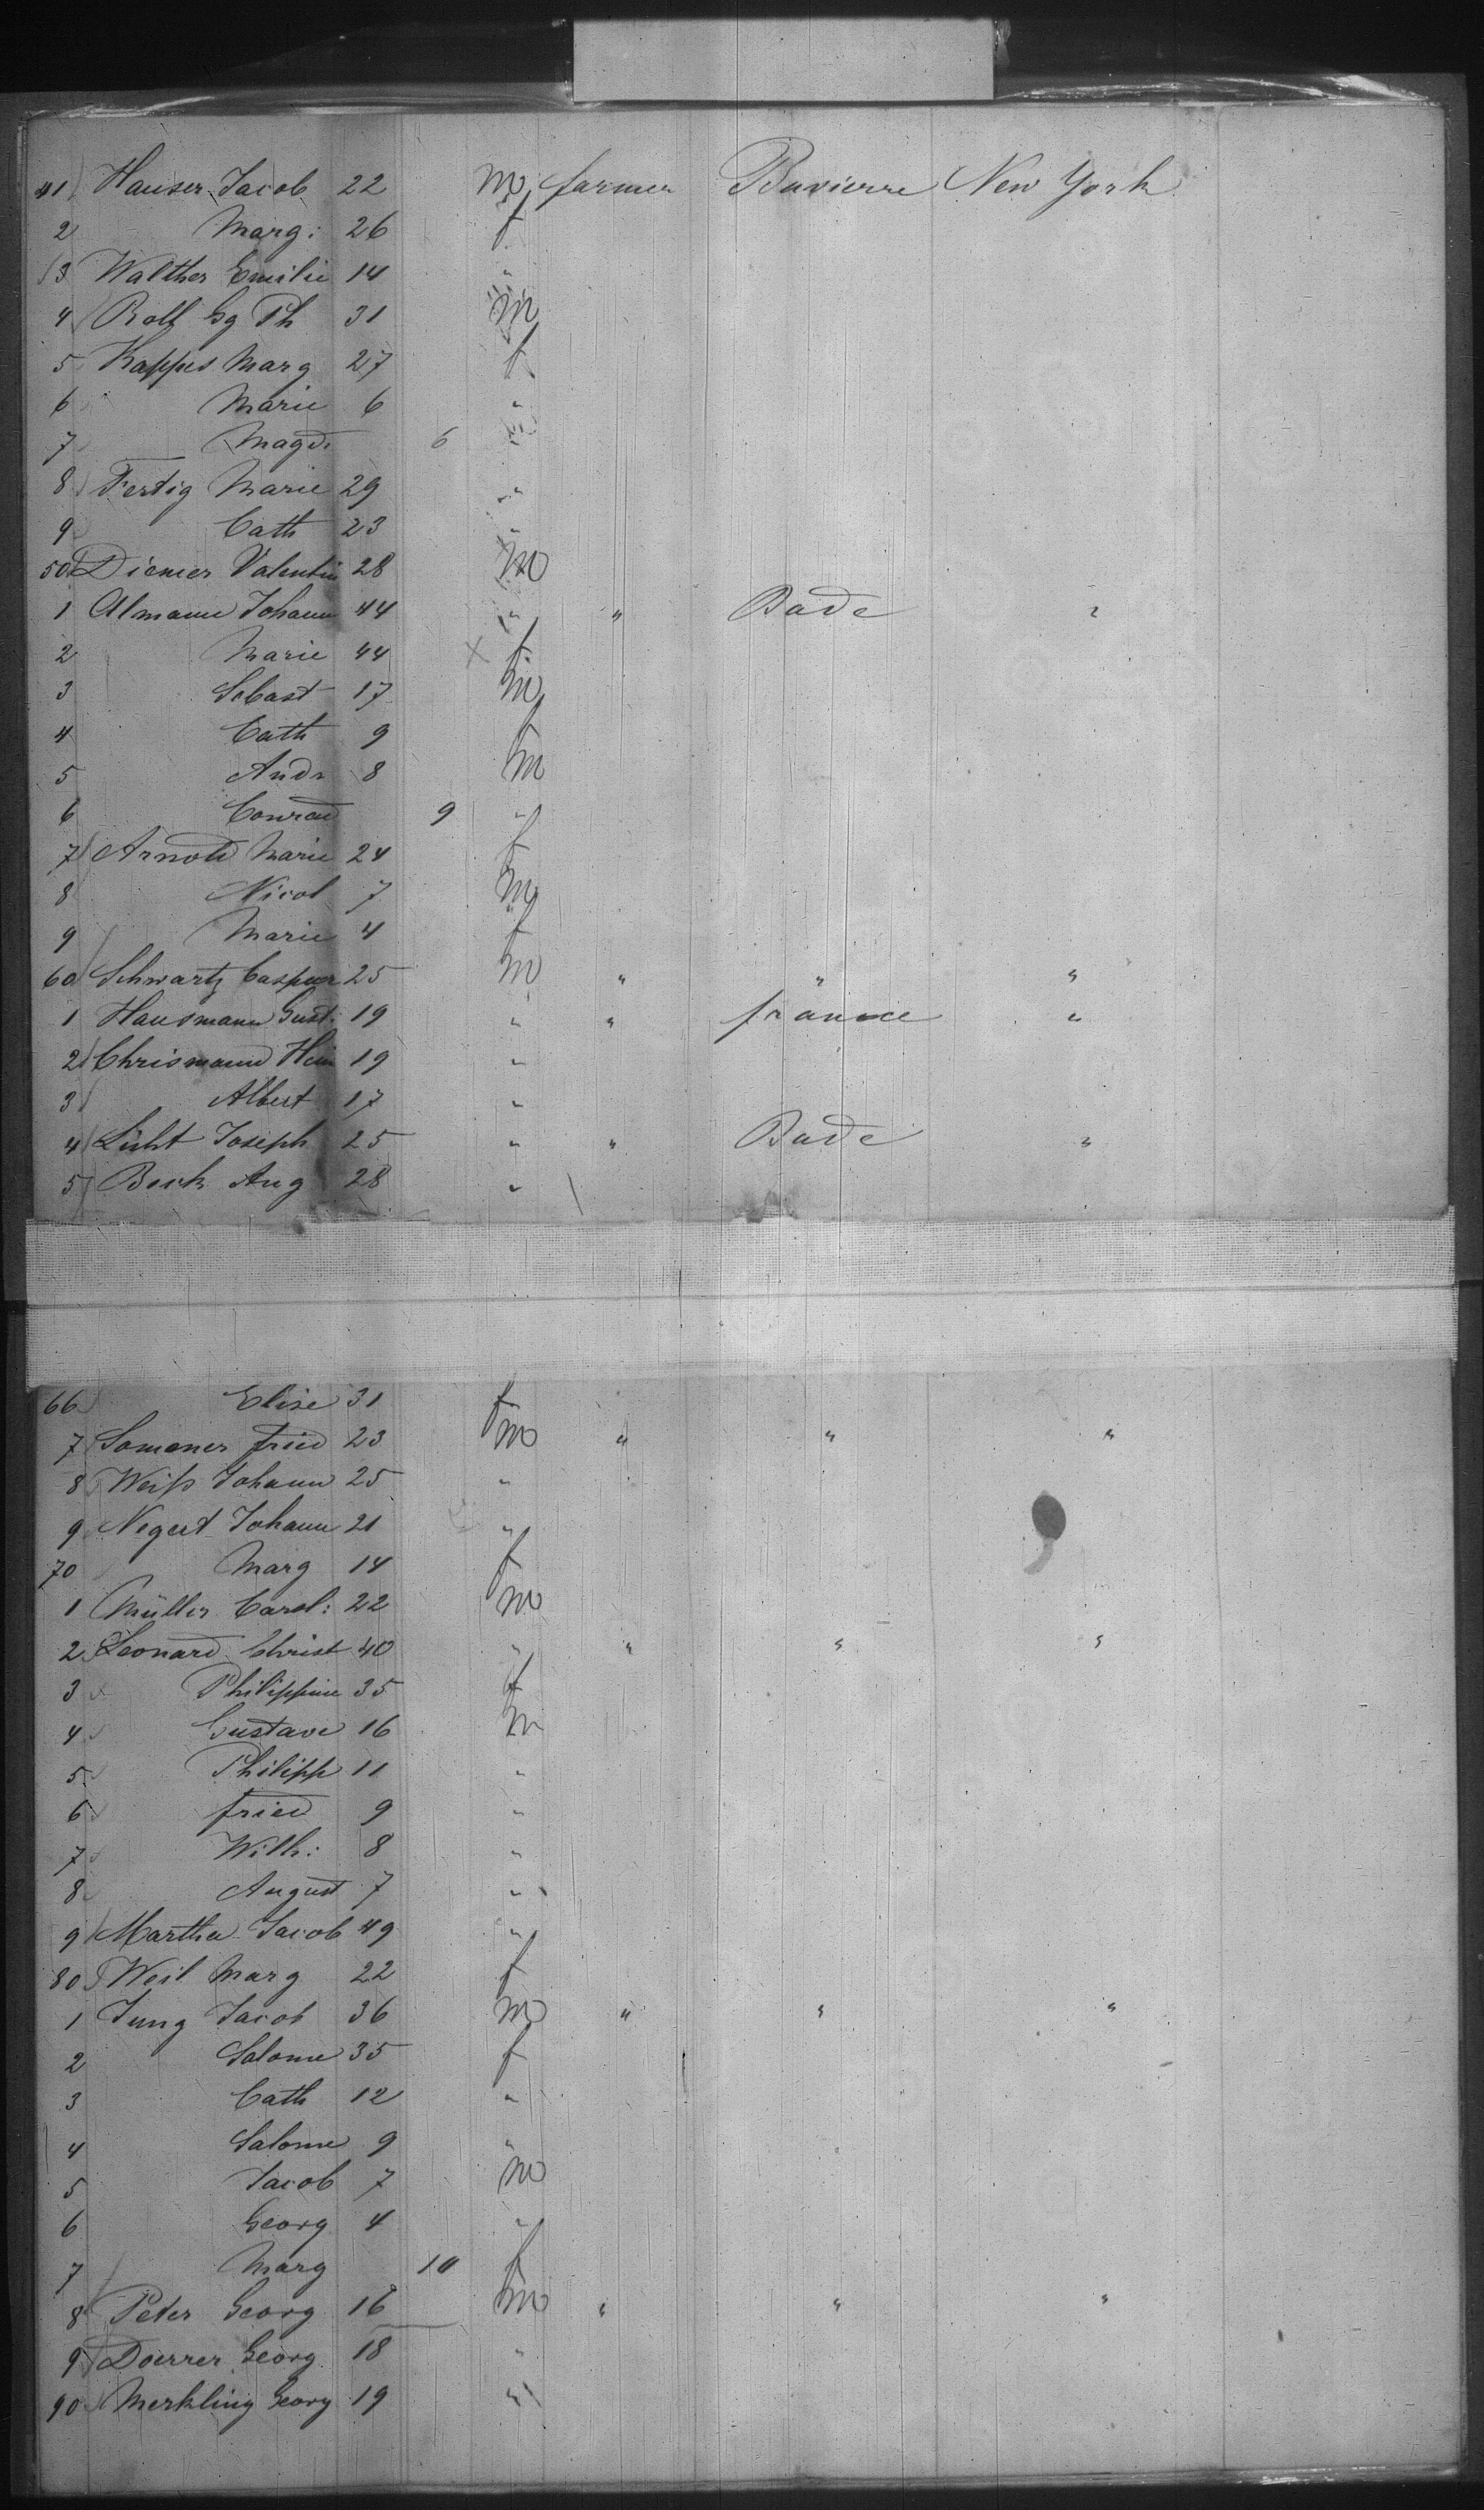 41 Hauser Jacob 22 m farmer Bavierre New York
2 Marg: 26 f
3 Walther Emilie 14 "
4 Roll Gg Ph 31 m
5 Kappes Marg 27 f
6 Marie 6 "
7 Magd. 6 "
8 Fertig Marie 29 "
9 Cath 23 "
50 Diemer Valentin 28 m
1 Almann Johann 44 " " Bade "
2 Marie 44 f
3 Sebast 17 m
4 Cath 9 f
5 Andr 8 m
6 Conrad 9 "
7 Arnold Marie 24 f
8 Nicol 7 m
9 Marie 4 f
60 Schwartz Caspar 25 m " " "
1 Hausmann Gust: 19 " " france "
2 Chrismann Hein 19 "
3 Albert 17 "
4 Licht Joseph 25 " " Bade "
5 Beck Aug 28 "
66 Elise 31 f
7 Fried 23 m " " "
8 Weiß Johann 25 "
9 Negert Johann 21 "
70 Marg 14 f
1 Müller Carol: 22 m
2 Leonard Christ 40 " " " "
3 Philippine 35 f
4 Gustave 16 m
5 Philipp 11 "
6 fried 9 "
7 Wilh: 8 "
8 August 7 "
9 Martha Jacob 49 "
80 Weil Marg 22 f
1 Jung Jacob 36 m " " "
2 Salome 35 f
3 Cath 12 "
4 Salome 9 "
5 Jacob 7 m
6 Georg 4 "
7 Marg 10 f
8 Peter Georg 16 m " " "
9 Doerrer Georg 18 "
90 Merkling Georg 19 "